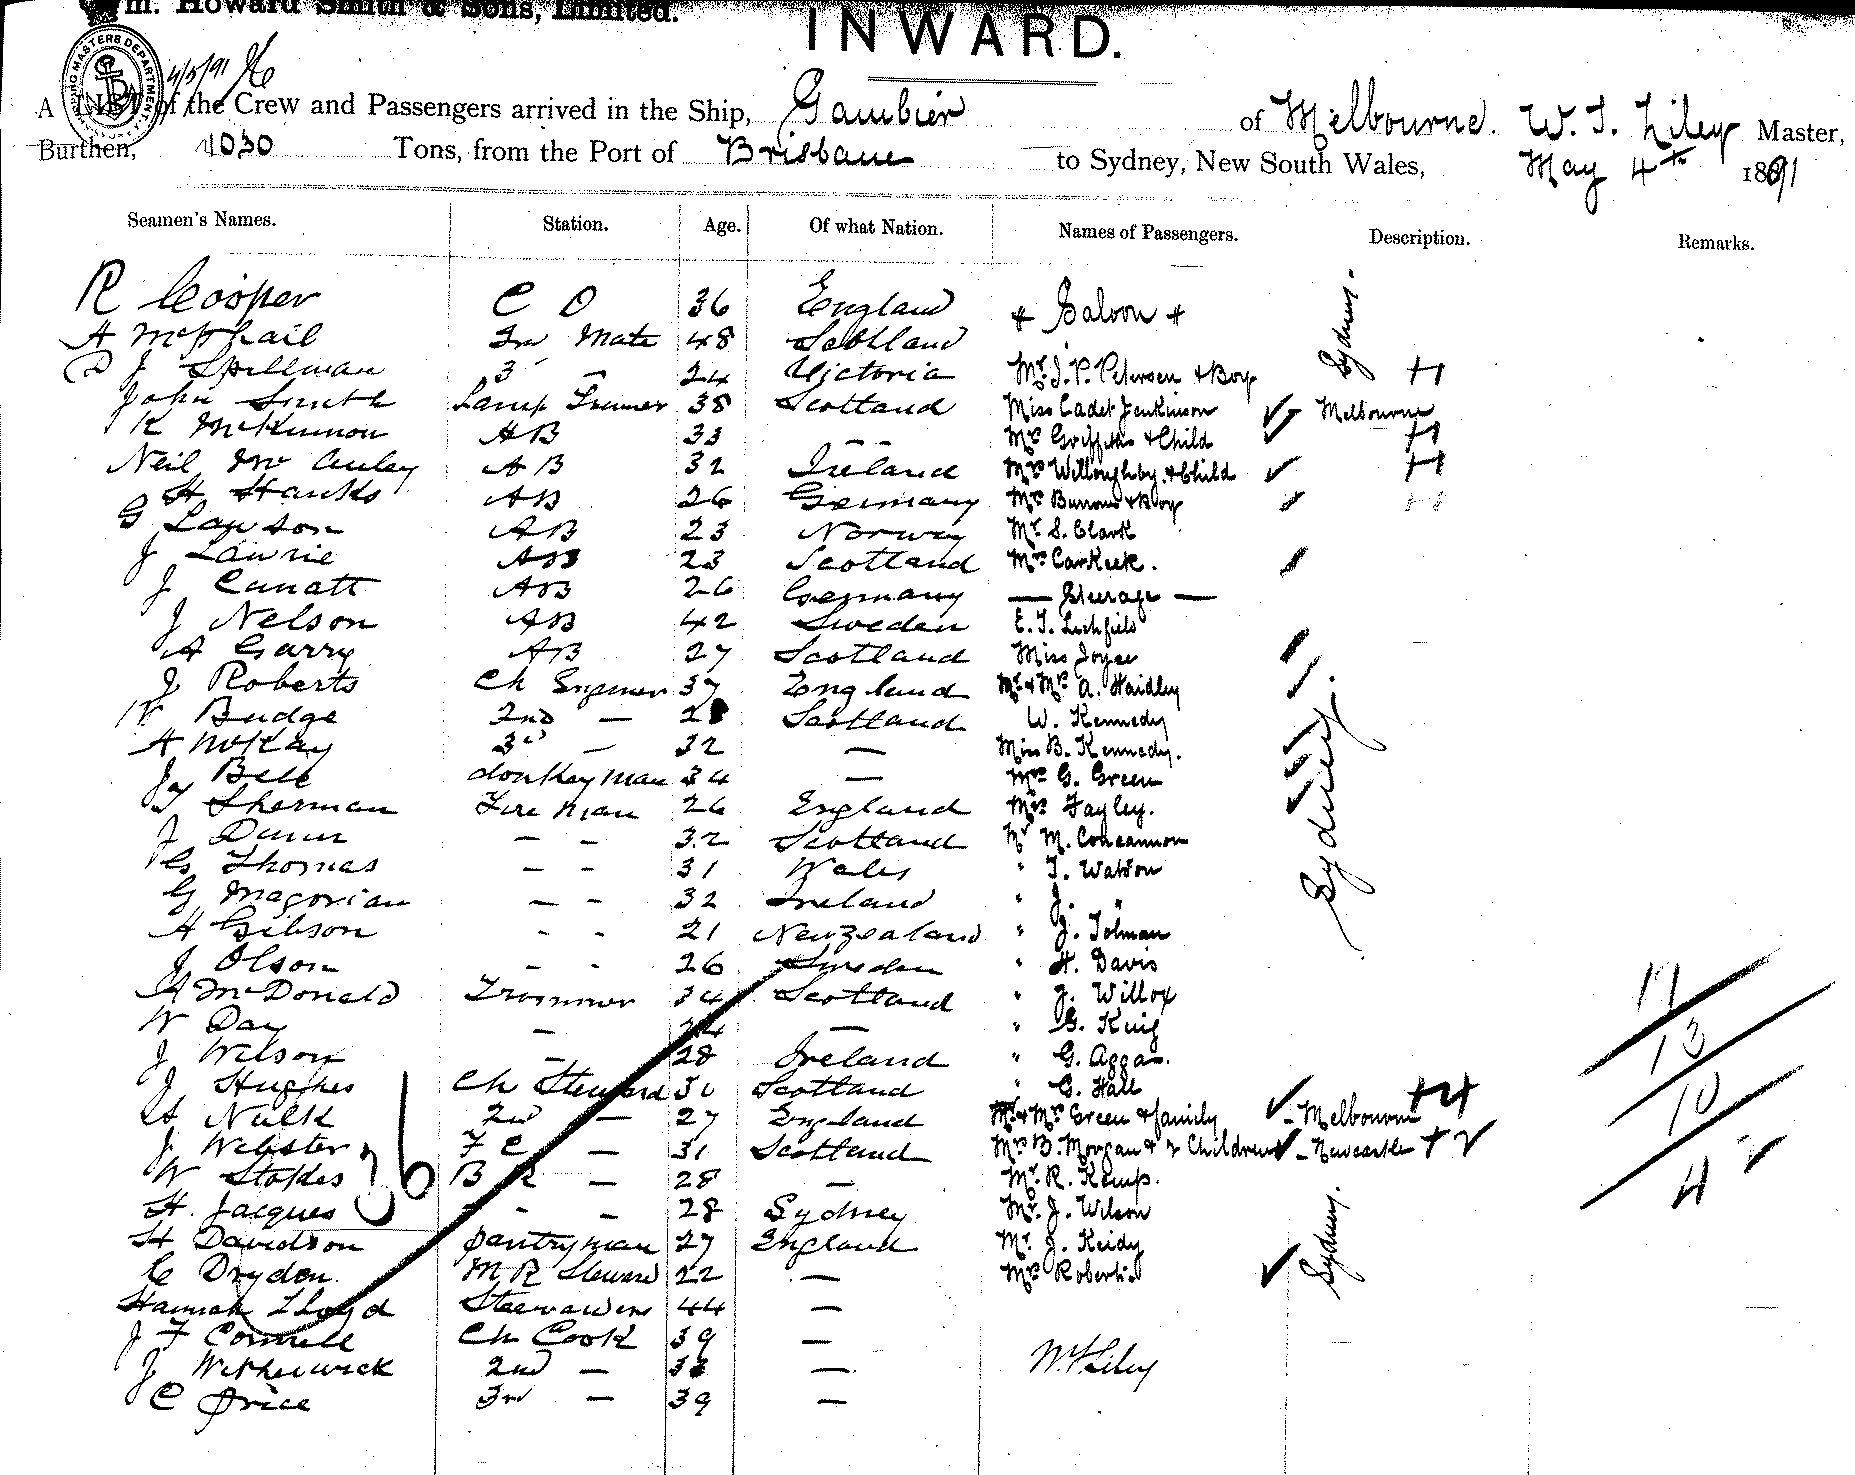 Wm. Howard Smith & Sons, Limited.
INWARD.
SHIPPING MASTERS DEPARTMENT
4/5/91
A LIST of the Crew and Passengers arrived in the Ship, Gambier of Melbourne. W. T. Liley Master,
Burthen, 1030 Tons, from the Port of Brisbane to Sydney, New South Wales, May 4th 1891
Seamen's Names. Station. Age. Of what Nation. Names of Passengers. Description. Remarks.
R Cooper C O 36 England + Saloon + Sydney.
A McPhail 2nd Mate 48 Scotland
D J Spillman 3 - 24 Victoria Mr. J. P. Petersen & Boy
John Smith Lamp Trimer 38 Scotland Miss Cadet Jenkinson Melbourne
K McKinnon AB 33 - - Mrs Griffiths & Child
Neil McAuley AB 32 Ireland Mrs Willoughby & Child
H Hanks AB 26 Germany Mrs Burrows & Boy
G Lawson AB 23 Norway Mr S. Clark
J Lawrie AB 23 Scotland Mrs Carkeek.
J Canatt AB 26 Germany — Steerage —
J Nelson AB 42 Sweden E. T. Lichfield
A Garry AB 27 Scotland Miss Joyce
J Roberts Ch Engineer 37 England Mr & Mrs A. Haidley Sydney.
Budge 2nd — Scotland W. Kennedy
A McKay 3rd — 32 — Miss B. Kennedy.
J Bell donkeyman 34 — Mrs G. Green
J Sherman Fireman 26 England Mrs Fayley.
J Dunn - - 32 Scotland Mr M. Concannon
G Thomas - - 31 Wales " T. Watson
G Magorian - - 32 Ireland " J. "
A Gibson - - 21 New Zealand " J. Tolman
J Olson - - 26 Sweden " H. Davis
A McDonald Trimmer 34 Scotland " J. Willox 17
W Day — 24 — " G. King
J Wilson — 28 Ireland " G. Aggas. 13
J Hughes Ch Steward 30 Scotland " C. Hall
A Nulk 2nd — 27 England Mr & Mrs Green & family - Melbourne 10
J Webster F C — 31 Scotland Mrs B. Morgan & 2 Children - Newcastle
W Stokes B R — 28 — Mr. R. Kemp. 4
H. Jacques - - — 28 Sydney Mr. J. Wilson
36
H Davidson pantryman 27 England Mr. J. Reidy Sydney.
C Dryden. M R Steward 22 —
Hannah Lloyd Stewardess 44 —
J F Connell Ch Cook 39 —
J Witherwick 2nd — 33 — W. T. Liley
C Price 3rd — 39 —